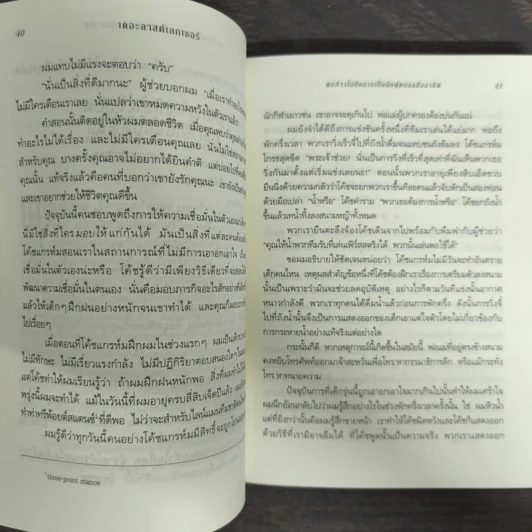 40
เดอะลาสต์เลกเชอร์
ผมแทบไม่มีแรงจะตอบว่า “ครับ”
“นั่นเป็นสิ่งที่ดีมากนะ” ผู้ช่วยบอกผม “เมื่อเราทำอะไร
ไม่มีใครเตือนเราเลย นั่นแปลว่าเขาหมดความหวังในตัวเราแล้ว
คำสอนนั้นติดอยู่ในหัวผมตลอดชีวิต เมื่อคุณพบว่าคุณ
ทำอะไรไม่ได้เรื่อง และไม่มีใครเตือนคุณเลย นั่นไม่ใช่
สำหรับคุณ บางครั้งคุณอาจไม่อยากได้ยินคำติ แต่บ่อยไป
คุณนั้น แท้จริงแล้วคือคนที่บอกว่าเขายังรักคุณนะ เขายัง
และเขาอยากช่วยให้ชีวิตคุณดีขึ้น
ปัจจุบันนี้คนชอบพูดถึงการให้ความเชื่อมั่นในตัวเอง
นี่มิใช่สิ่งที่ใครมอบให้แก่กันได้ มันเป็นสิ่งที่แต่ละคน
โค้ชแกรห์มสอนเราในสถานการณ์ที่ไม่มีการเอาอกเอาใจ
เชื่อมั่นในตัวเองน่ะหรือ โค้ชรู้ดีว่ามีเพียงวิธีเดียวที่จะสอน
พัฒนาความเชื่อมั่นในตนเอง นั่นคือมอบภารกิจอะไรสักอย่าง
แล้วให้เด็กๆ ฝึกฝนอย่างหนักจนเขาทำได้ และคุณก็มอบ
ไปเรื่อยๆ
เมื่อตอนที่โค้ชแกรห์มฝึกผมในช่วงแรกๆ ผมเป็นเด็ก
ไม่มีทักษะ ไม่มีเรี่ยวแรงกำลัง ไม่มีปฏิกิริยาตอบสนองใดๆ
แต่โค้ชทำให้ผมเรียนรู้ว่า ถ้าผมฝึกฝนหนักพอ สิ่งที่ผม
พรุ่งนี้ผมจะทำได้ แม้ในวันนี้ที่ผมอายุครบสี่สิบเจ็ดปีแล้ว
ท่าท่าทรีพ้อยต์สแตนซ์*ที่ดีพอ ไม่ว่าจะสำหรับไลน์แมน
ผมรู้ดีว่าทุกวันนี้คนอย่างโค้ชแกรห์มมีสิทธิ์จะถูก
*three-point stance
41
นักกีฬาเยาวชน เขาอาจจะดุเกินไป พ่อแม่ผู้ปกครองต้องบ่นกันแน่
ผมยังจำได้ดีถึงการแข่งขันครั้งหนึ่งที่ทีมเราเล่นได้แย่มาก พอถึง
พักครึ่งเวลา พวกเราวิ่งเร็วจี๋ไปที่ถังน้ำดื่มจนแทบชนถังล้มลง โค้ชแกรห์ม
โกรธสุดขีด “พระเจ้าช่วย! นั่นเป็นการวิ่งที่เร็วที่สุดเท่าที่ฉันเห็นพวกเธอ
วิ่งกันมาตั้งแต่เริ่มแข่งเลยนะ!” ตอนนั้นพวกเราอายุเพียงสิบเอ็ดขวบ
ยืนนิ่งด้วยความกลัวว่าโค้ชจะยกพวกเราขึ้นทีละคนแล้วจับหักเป็นสองท่อน
ด้วยมือเปล่า “น้ำหรือ” โค้ชคำราม “พวกเธอต้องการน้ำหรือ” โค้ชยกถังน้ำ
ขึ้นแล้วเทน้ำทิ้งลงสนามหญ้าทั้งหมด
พวกเรายืนตะลึงจ้องโค้ชเดินจากไปพร้อมกับพึมพำกับผู้ช่วยว่า
“คุณให้น้ำพวกทีมรับที่เล่นเฟิร์สตริงได้ พวกนั้นเล่นพอใช้ได้”
ขอผมอธิบายให้ชัดเจนหน่อยว่า โค้ชแกรห์มไม่มีวันจะทำอันตราย
เด็กคนไหน เหตุผลสำคัญข้อหนึ่งที่โค้ชต้องฝึกเราเรื่องการเตรียมตัวลงสนาม
นั้นเป็นเพราะว่ามันจะช่วยลดอุบัติเหตุ อย่างไรก็ตามวันที่แข่งนั้นอากาศ
หนาวกำลังดี พวกเราทุกคนได้ดื่มน้ำแล้วก่อนพักครึ่ง ดังนั้นการวิ่งจี๋
ไปที่ถังน้ำนั้นจึงเป็นการแสดงออกของเด็กเอาแต่ใจตัวโดยไม่เกี่ยวข้องกับ
การกระหายน้ำอย่างแท้จริงแต่อย่างใด
กระนั้นก็ดี หากเหตุการณ์นี้เกิดขึ้นในสมัยนี้ พ่อแม่ที่อยู่ตรงข้างสนาม
คงหยิบโทรศัพท์ออกมาจ้าละหวั่นเพื่อโทร.หากรรมาธิการลีก หรือแม้กระทั่ง
โทร.หาทนายความ
ปัจจุบันการที่เด็กรุ่นนี้ถูกเอาอกเอาใจมากเกินไปนั้นทำให้ผมเศร้าใจ
ผมนึกย้อนกลับไปว่าผมรู้สึกอย่างไรในช่วงพักครึ่งเวลาครั้งนั้น ใช่ ผมหิวน้ำ
แต่ที่ยิ่งกว่านั้นคือผมรู้สึกขายหน้า เราทำให้โค้ชผิดหวังและโค้ชก็แสดงออก
ด้วยวิธีที่เรามิอาจลืมได้ ที่โค้ชพูดนั้นเป็นความจริง พวกเราแสดงออก